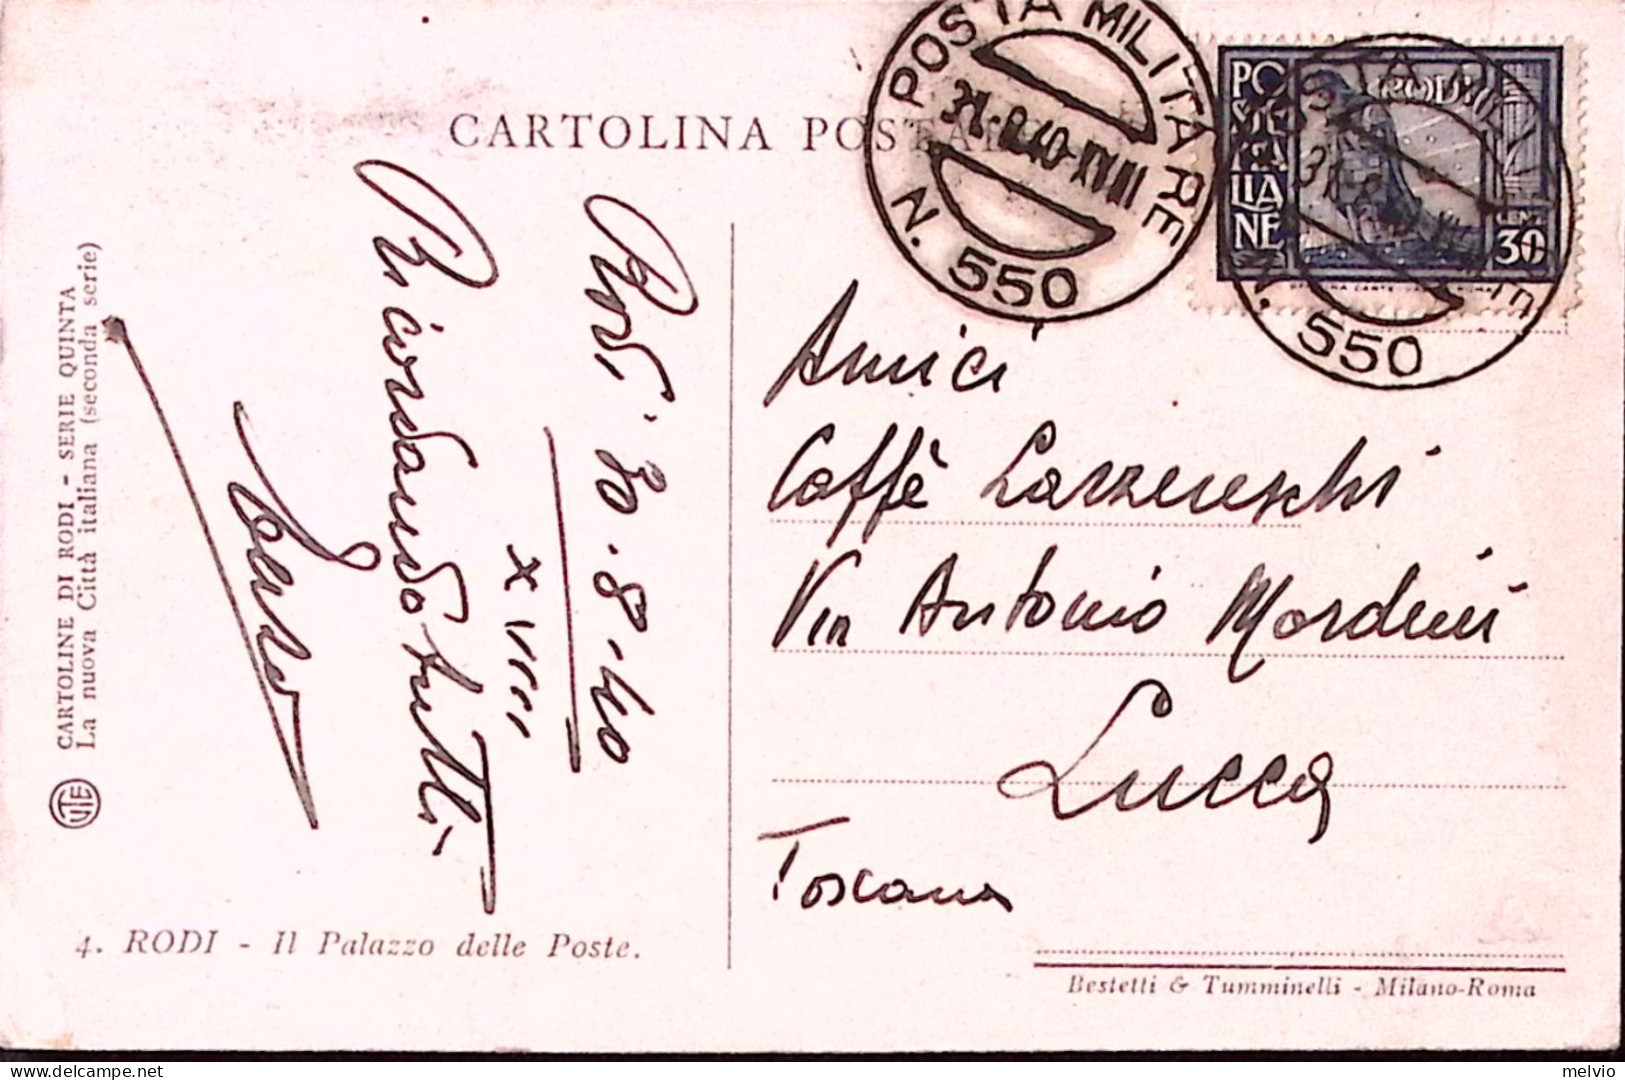 CARTOLINA POSTA
POSTA MILITARE
31-8.40-XVIII
N. 550
POSTE ITALIANE
RODI
CENT
30
N. 550
Rodi 30.8.40
XVIII
Ricordando tutti
Amici
Caffè Lazzereschi
Via Antonio Mordini
Lucca
Toscana
CARTOLINE DI RODI - SERIE QUINTA
La nuova Città italiana (seconda serie)
4. RODI - Il Palazzo delle Poste.
Bestetti & Tumminelli - Milano-Roma
melvio